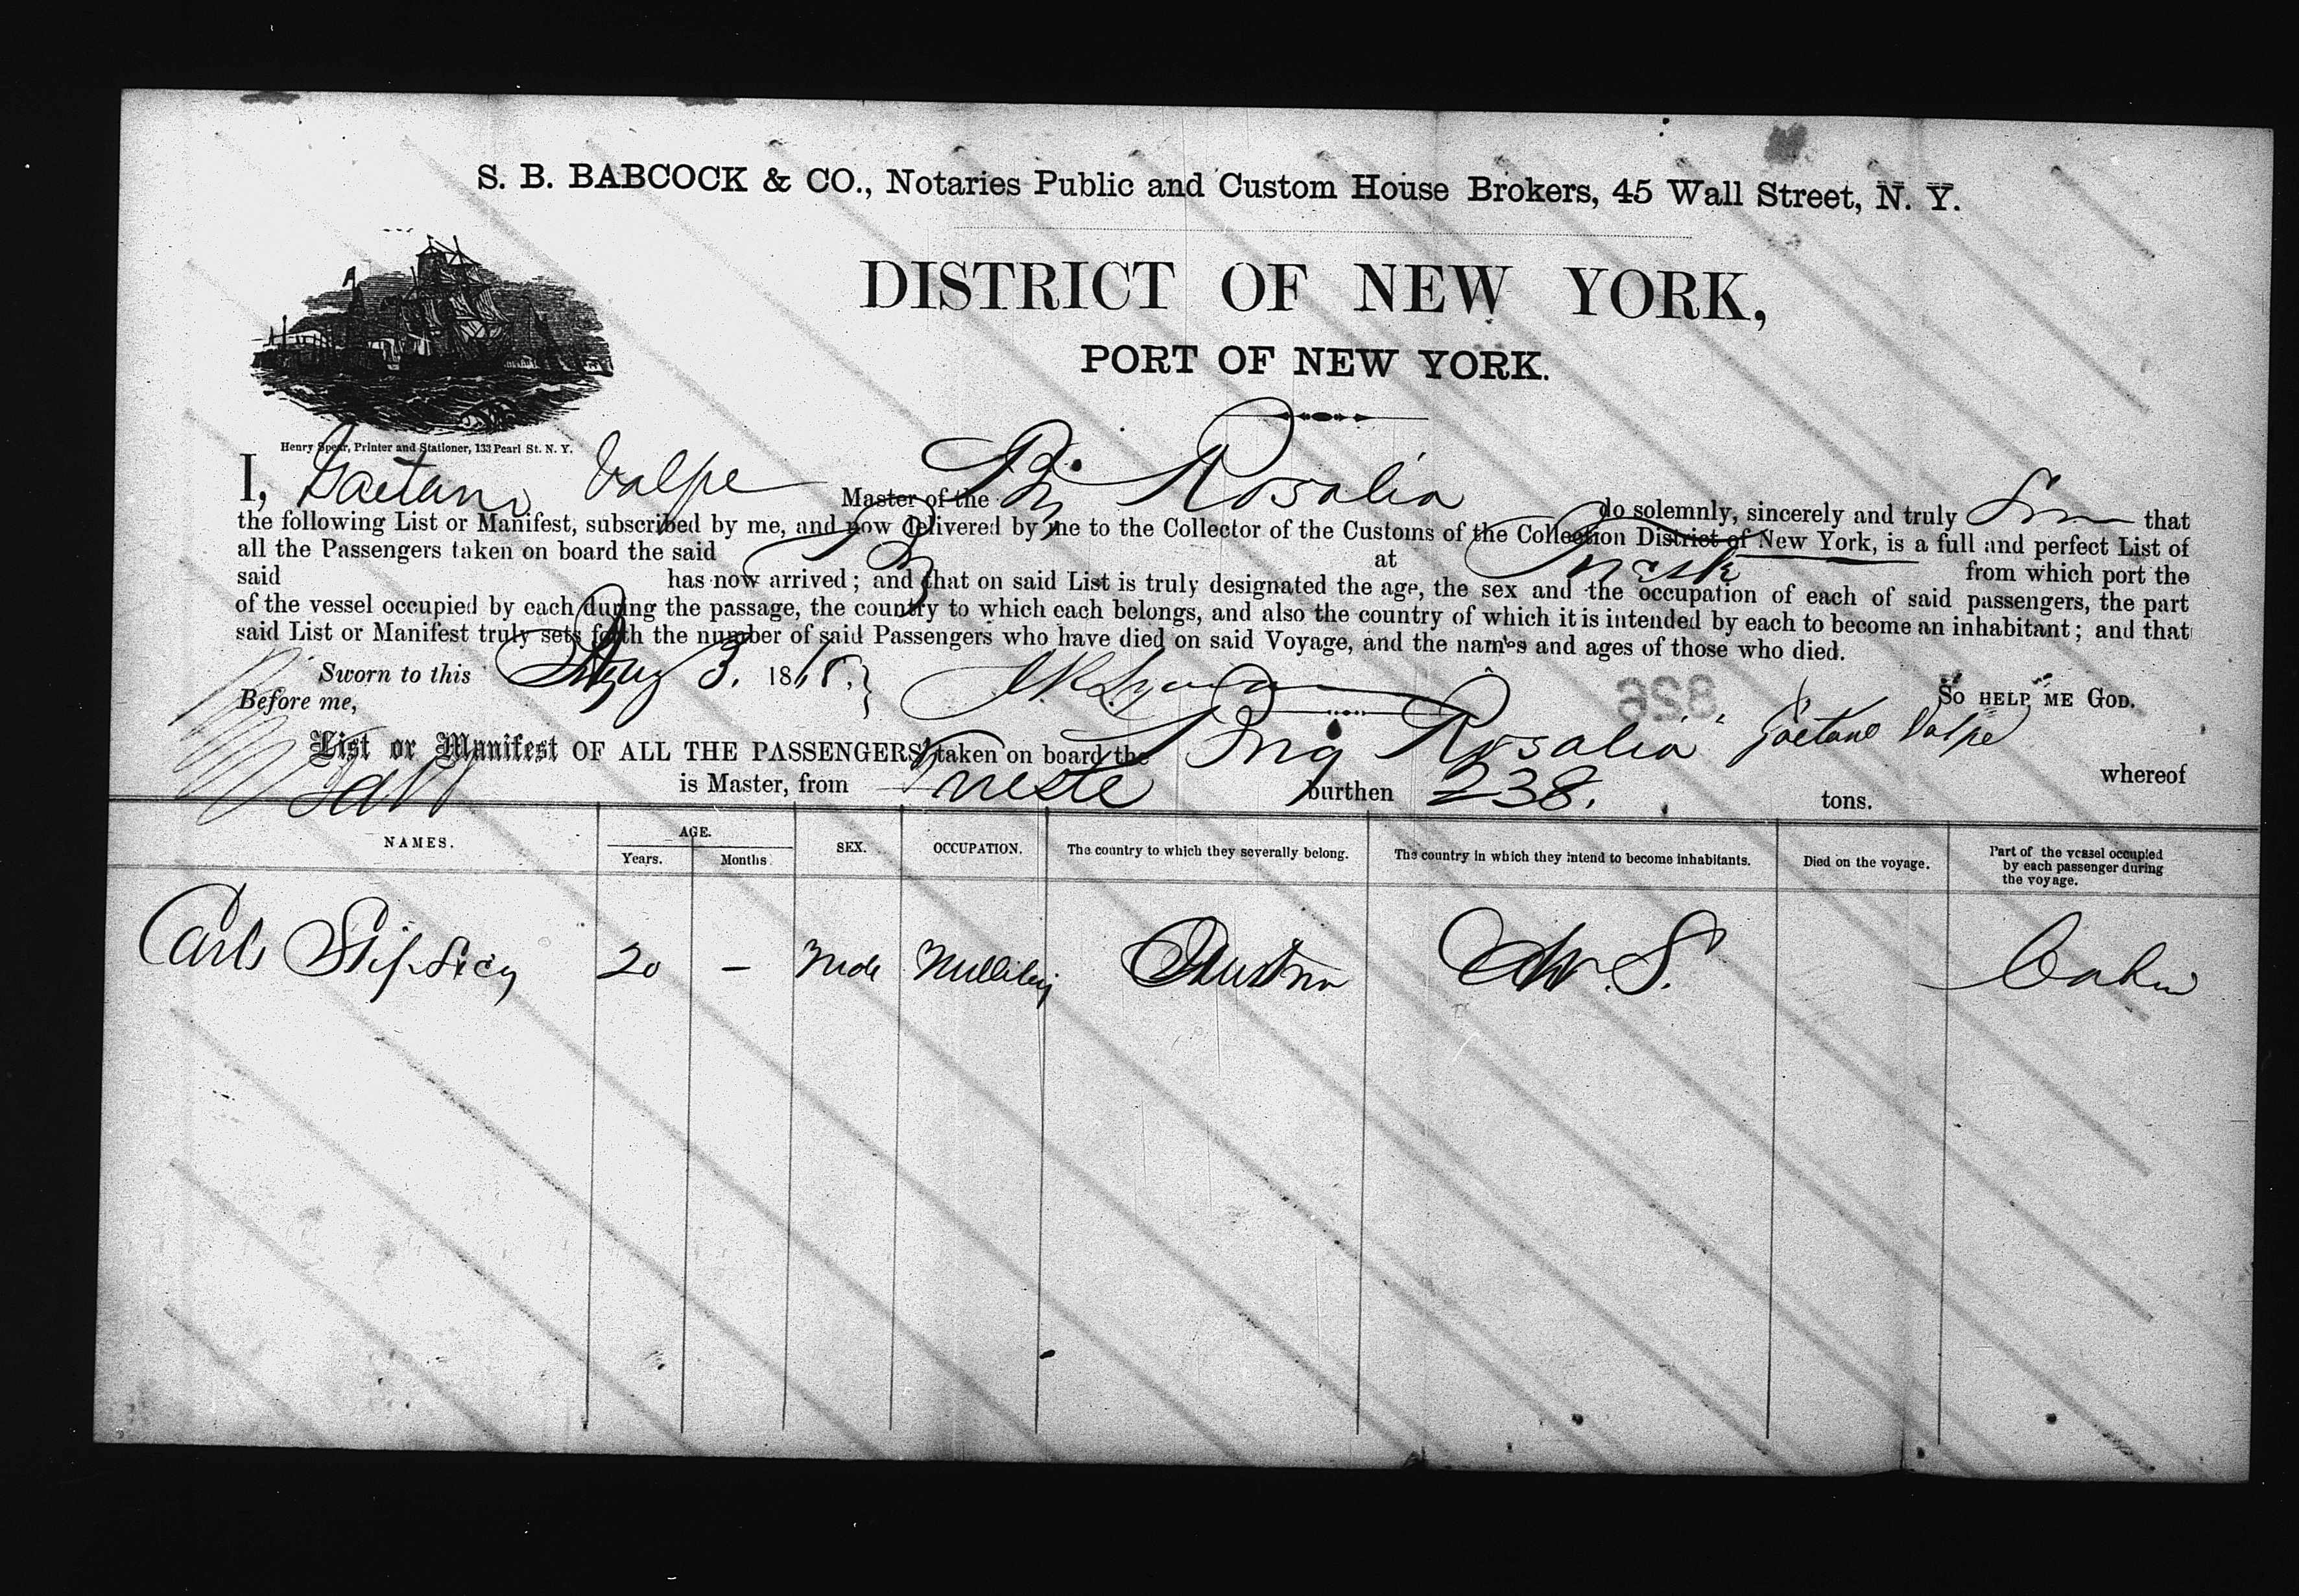 S. B. BABCOCK & CO., Notaries Public and Custom House Brokers, 45 Wall Street, N. Y.
DISTRICT OF NEW YORK,
PORT OF NEW YORK.
Henry Spear, Printer and Stationer, 133 Pearl St. N. Y.
I, Gaetano Valpe Master of the Br Rosalia do solemnly, sincerely and truly that
the following List or Manifest, subscribed by me, and now delivered by me to the Collector of the Customs of the Collection District of New York, is a full and perfect List of
all the Passengers taken on board the said B at Trieste from which port the
said has now arrived; and that on said List is truly designated the age, the sex and the occupation of each of said passengers, the part
of the vessel occupied by each during the passage, the country to which each belongs, and also the country of which it is intended by each to become an inhabitant; and that
said List or Manifest truly sets forth the number of said Passengers who have died on said Voyage, and the names and ages of those who died.
Sworn to this Aug 3. 1868. SO HELP ME GOD.
Before me, 826 Gaetano Valpe
List or Manifest OF ALL THE PASSENGERS taken on board the Brig Rosalia whereof
is Master, from Trieste burthen 238. tons.
NAMES. AGE. Years. Months SEX. OCCUPATION. The country to which they severally belong. The country in which they intend to become inhabitants. Died on the voyage. Part of the vessel occupied by each passenger during the voyage.
Carlo 20 – Male Austria U. S. Cabin